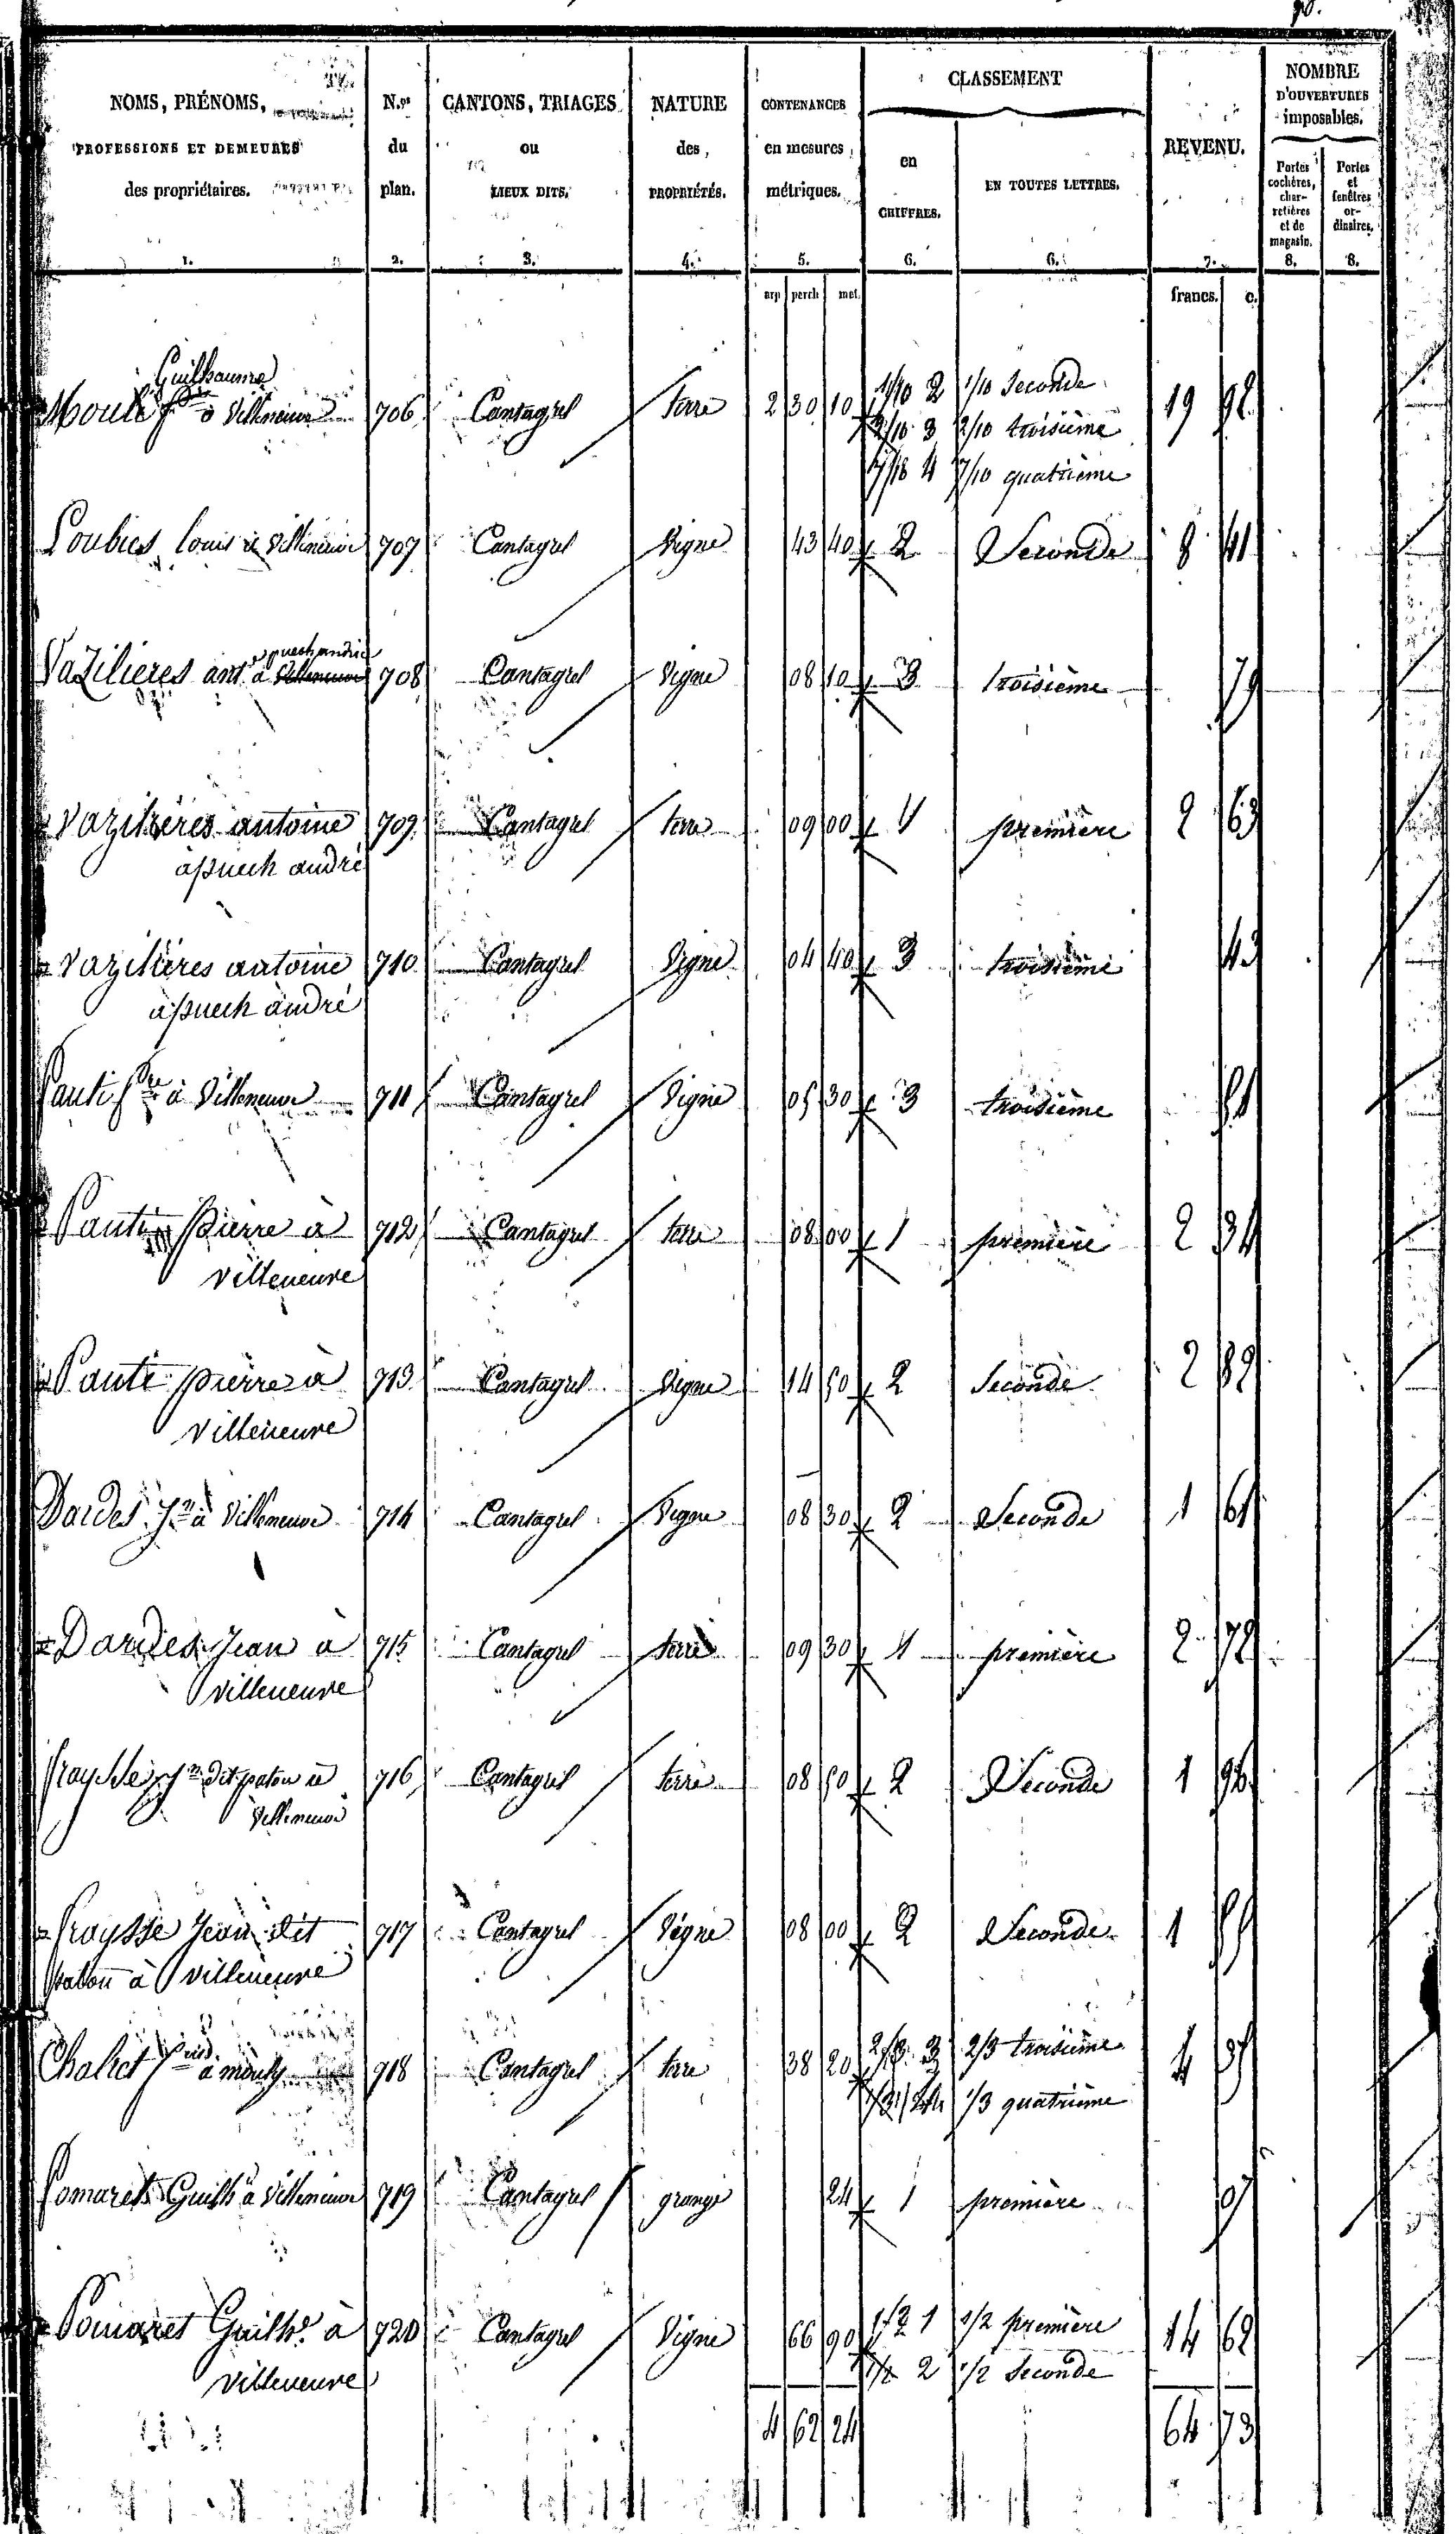 90.
NOMS, PRÉNOMS,
PROFESSIONS ET DEMEURES
des propriétaires.
1.
N.os
du
plan.
2.
CANTONS, TRIAGES
ou
LIEUX DITS.
3.
NATURE
des
PROPRIÉTÉS.
4.
CONTENANCES
en mesures
métriques.
5.
CLASSEMENT
en
CHIFFRES.
6.
EN TOUTES LETTRES.
6.
REVENU.
7.
NOMBRE
D'OUVERTURES
imposables.
Portes
cochères,
char-
retières
et de
magasin.
8.
Portes
et
fenêtres
or-
dinaires.
8.
arp perch met. francs. c.
Guilhaume
à Villeneuve 706 Cantagrel terre 2 30 10 1/10 2 1/10 Seconde 19 92
2/10 3 2/10 troisième
7/10 4 7/10 quatrième
Loubies louis à Villeneuve 707 Cantagrel Vigne 43 40 2 Seconde 8 41
à puech andrié
Vazilieres ant.e à Villeneuve 708 Cantagrel Vigne 08 10 3 troisième 79
Vazilières antoine 709 Cantagrel terre 09 00 1 première 2 63
à puech andré
Vazilières antoine 710 Cantagrel Vigne 04 40 3 troisième 43
à puech andré
Pauti p.re à Villeneuve 711 Cantagrel Vigne 05 30 3 troisième 51
Pauti pierre à 712 Cantagrel terre 08 00 1 première 2 34
Villeneuve
Pauti pierre à 713 Cantagrel Vigne 14 50 2 Seconde 2 82
Villeneuve
Dardes J.n à Villeneuve 714 Cantagrel Vigne 08 30 2 Seconde 1 61
Dardes Jean à 715 Cantagrel terre 09 30 1 première 2 72
Villeneuve
fraysse J.n dit patou à 716 Cantagrel terre 08 50 2 Seconde 1 96
Villeneuve
fraysse Jean dit 717 Cantagrel Vigne 08 00 2 Seconde 1 55
patou à Villeneuve
Chalret à 718 Cantagrel terre 38 20 2/3 3 2/3 troisième 4 37
1/3 4 1/3 quatrième
Pomaret Guilh.e à Villeneuve 719 Cantagrel grange 24 1 première 07
Pomaret Guilh.e à 720 Cantagrel Vigne 66 90 1/2 1 1/2 première 14 62
Villeneuve 1/2 2 1/2 Seconde
4 62 24 64 73